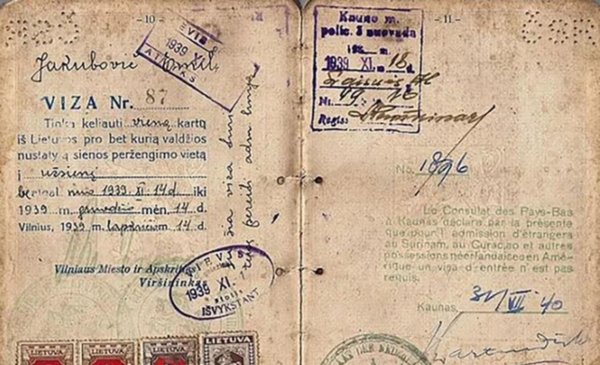 - 10 -
1939 XI
Jakubovic
VIZA Nr. 87
Tinka keliauti vieną kartą
iš Lietuvos pro bet kurią valdžios
nustatytą sienos peržengimo vietą
į užsienį
nuo 1939. XI. 14 d. iki
1939 m. gruodžio mėn. 14 d.
Vilnius, 1939 m. lapkričio m. 14 d.
Vilniaus Miesto ir Apskrities
Viršininkas
šia viza
1939 XI.
IŠVYKSTANT
LIETUVA
LIETUVA
LIETUVA
LIETUVA
- 11 -
Kauno m.
polic. 3 nuovada
1939 XI. m. 18 d.
Nr.
Regist.
No. 1896
Le Consulat des Pays-Bas
à Kaunas déclare par la présente
que pour l'admission d'étrangers
au Surinam, au Curaçao et autres
possessions néerlandaises en Amé-
rique un visa d'entrée n'est pas
requis.
Kaunas, 31/VII 40